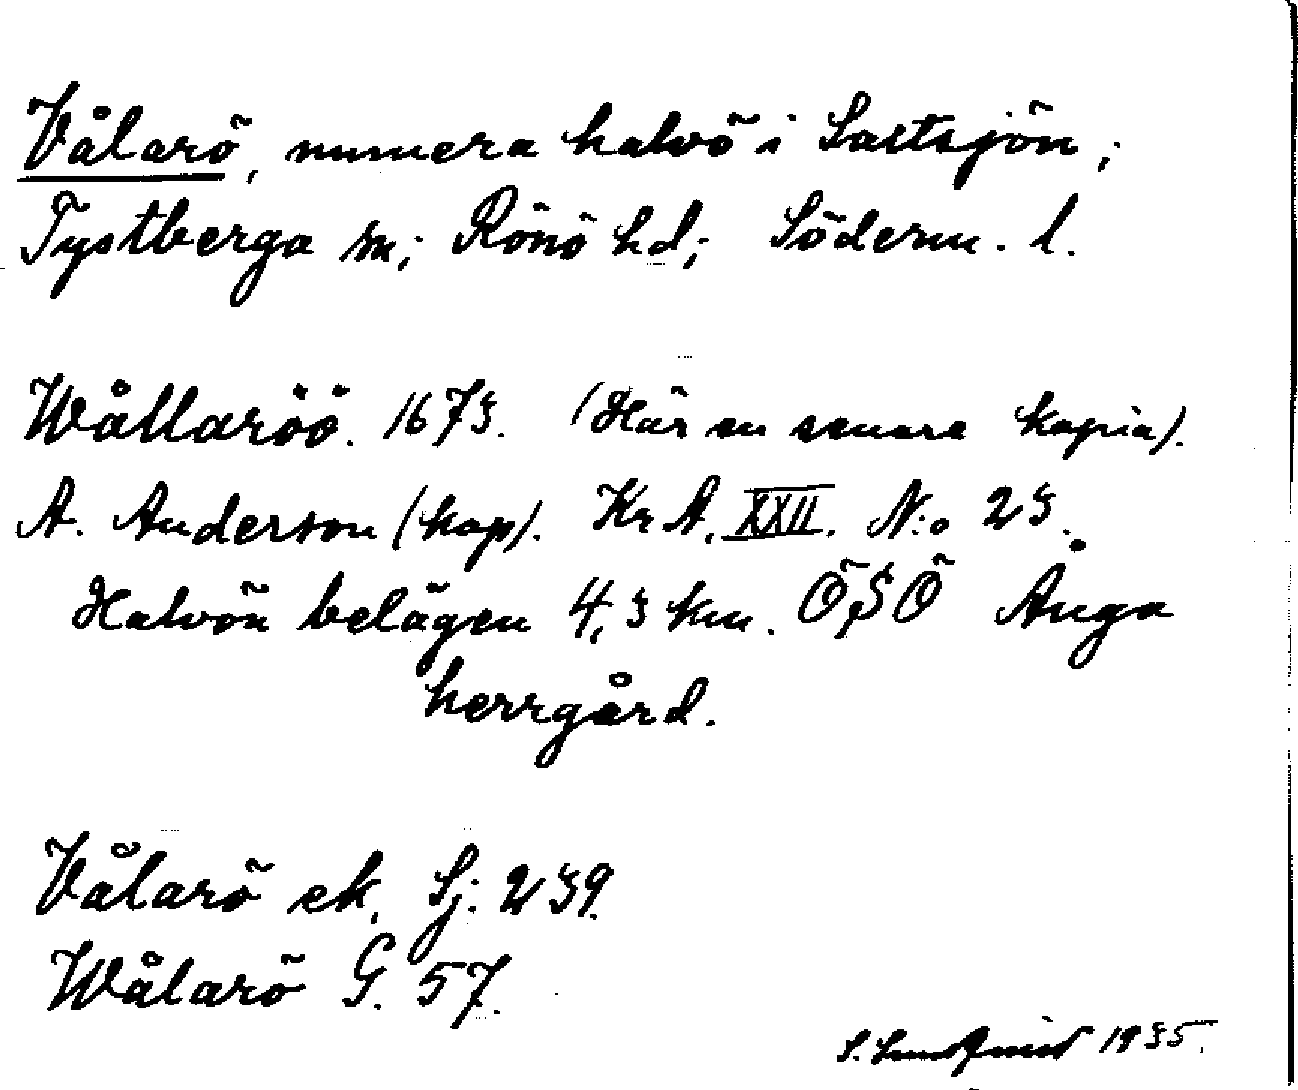 Vålarö, numera halvö i Saltsjön,
Tystberga sn; Rönö hd; Söderm. l.
Wållaröö. 1673. (Här en senare kopia).
A. Anderson (kop). Kr A. XXII. N:o 23.
Halvön belägen 4,3 km. ÖSÖ Ånga
herrgård.
Vålarö ek. Sj: 239.
Wålarö G. 57.
S. Lundqvist 1935.